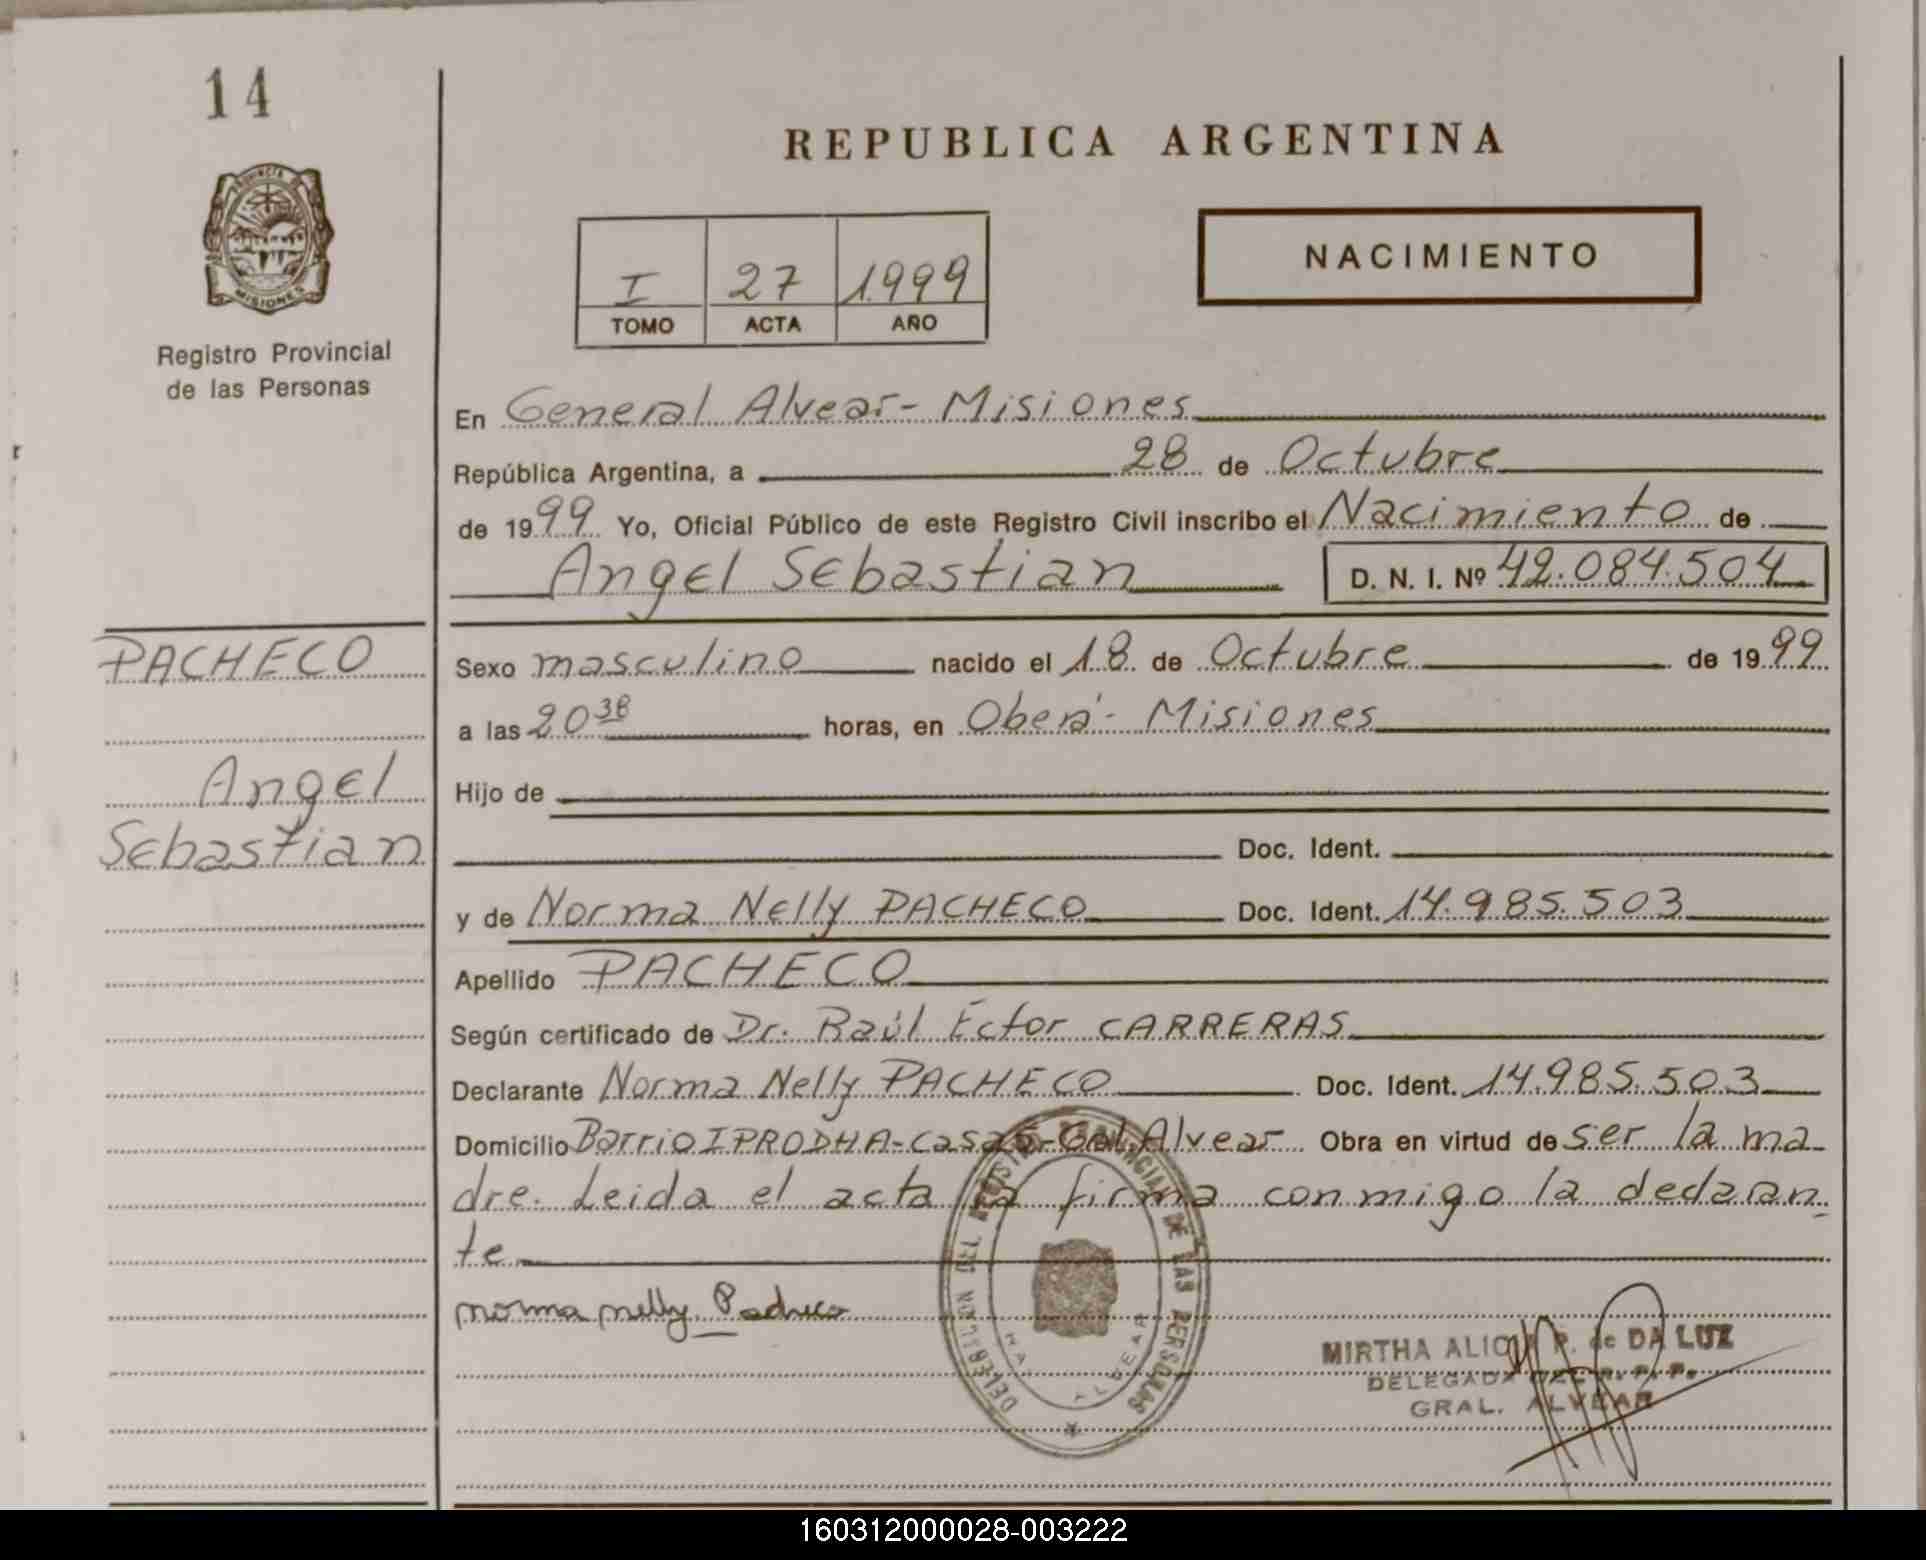 14
REPUBLICA ARGENTINA
PROVINCIA DE
MISIONES
Registro Provincial
de las Personas
I 27 1999
TOMO ACTA AÑO
NACIMIENTO
En General Alvear - Misiones
República Argentina, a 28 de Octubre
de 1999 Yo, Oficial Público de este Registro Civil inscribo el Nacimiento de
Angel Sebastian D. N. I. Nº 42.084.504
PACHECO
Angel
Sebastian
Sexo masculino nacido el 18 de Octubre de 1999
a las 20 38 horas, en Oberá - Misiones
Hijo de
Doc. Ident.
y de Norma Nelly PACHECO Doc. Ident. 14.985.503
Apellido PACHECO
Según certificado de Dr. Raúl Ector CARRERAS
Declarante Norma Nelly PACHECO Doc. Ident. 14.985.503
Domicilio Barrio IPRODHA - Casa - Gral Alvear Obra en virtud de ser la ma
dre. Leida el acta la firma conmigo la declaran
te
norma nelly Pacheco
DELEGACION DEL REGISTRO PROVINCIAL DE LAS PERSONAS
ALVEAR
MIRTHA ALICIA P. de DA LUZ
DELEGADA DEL R. P. P.
GRAL. ALVEAR
160312000028-003222